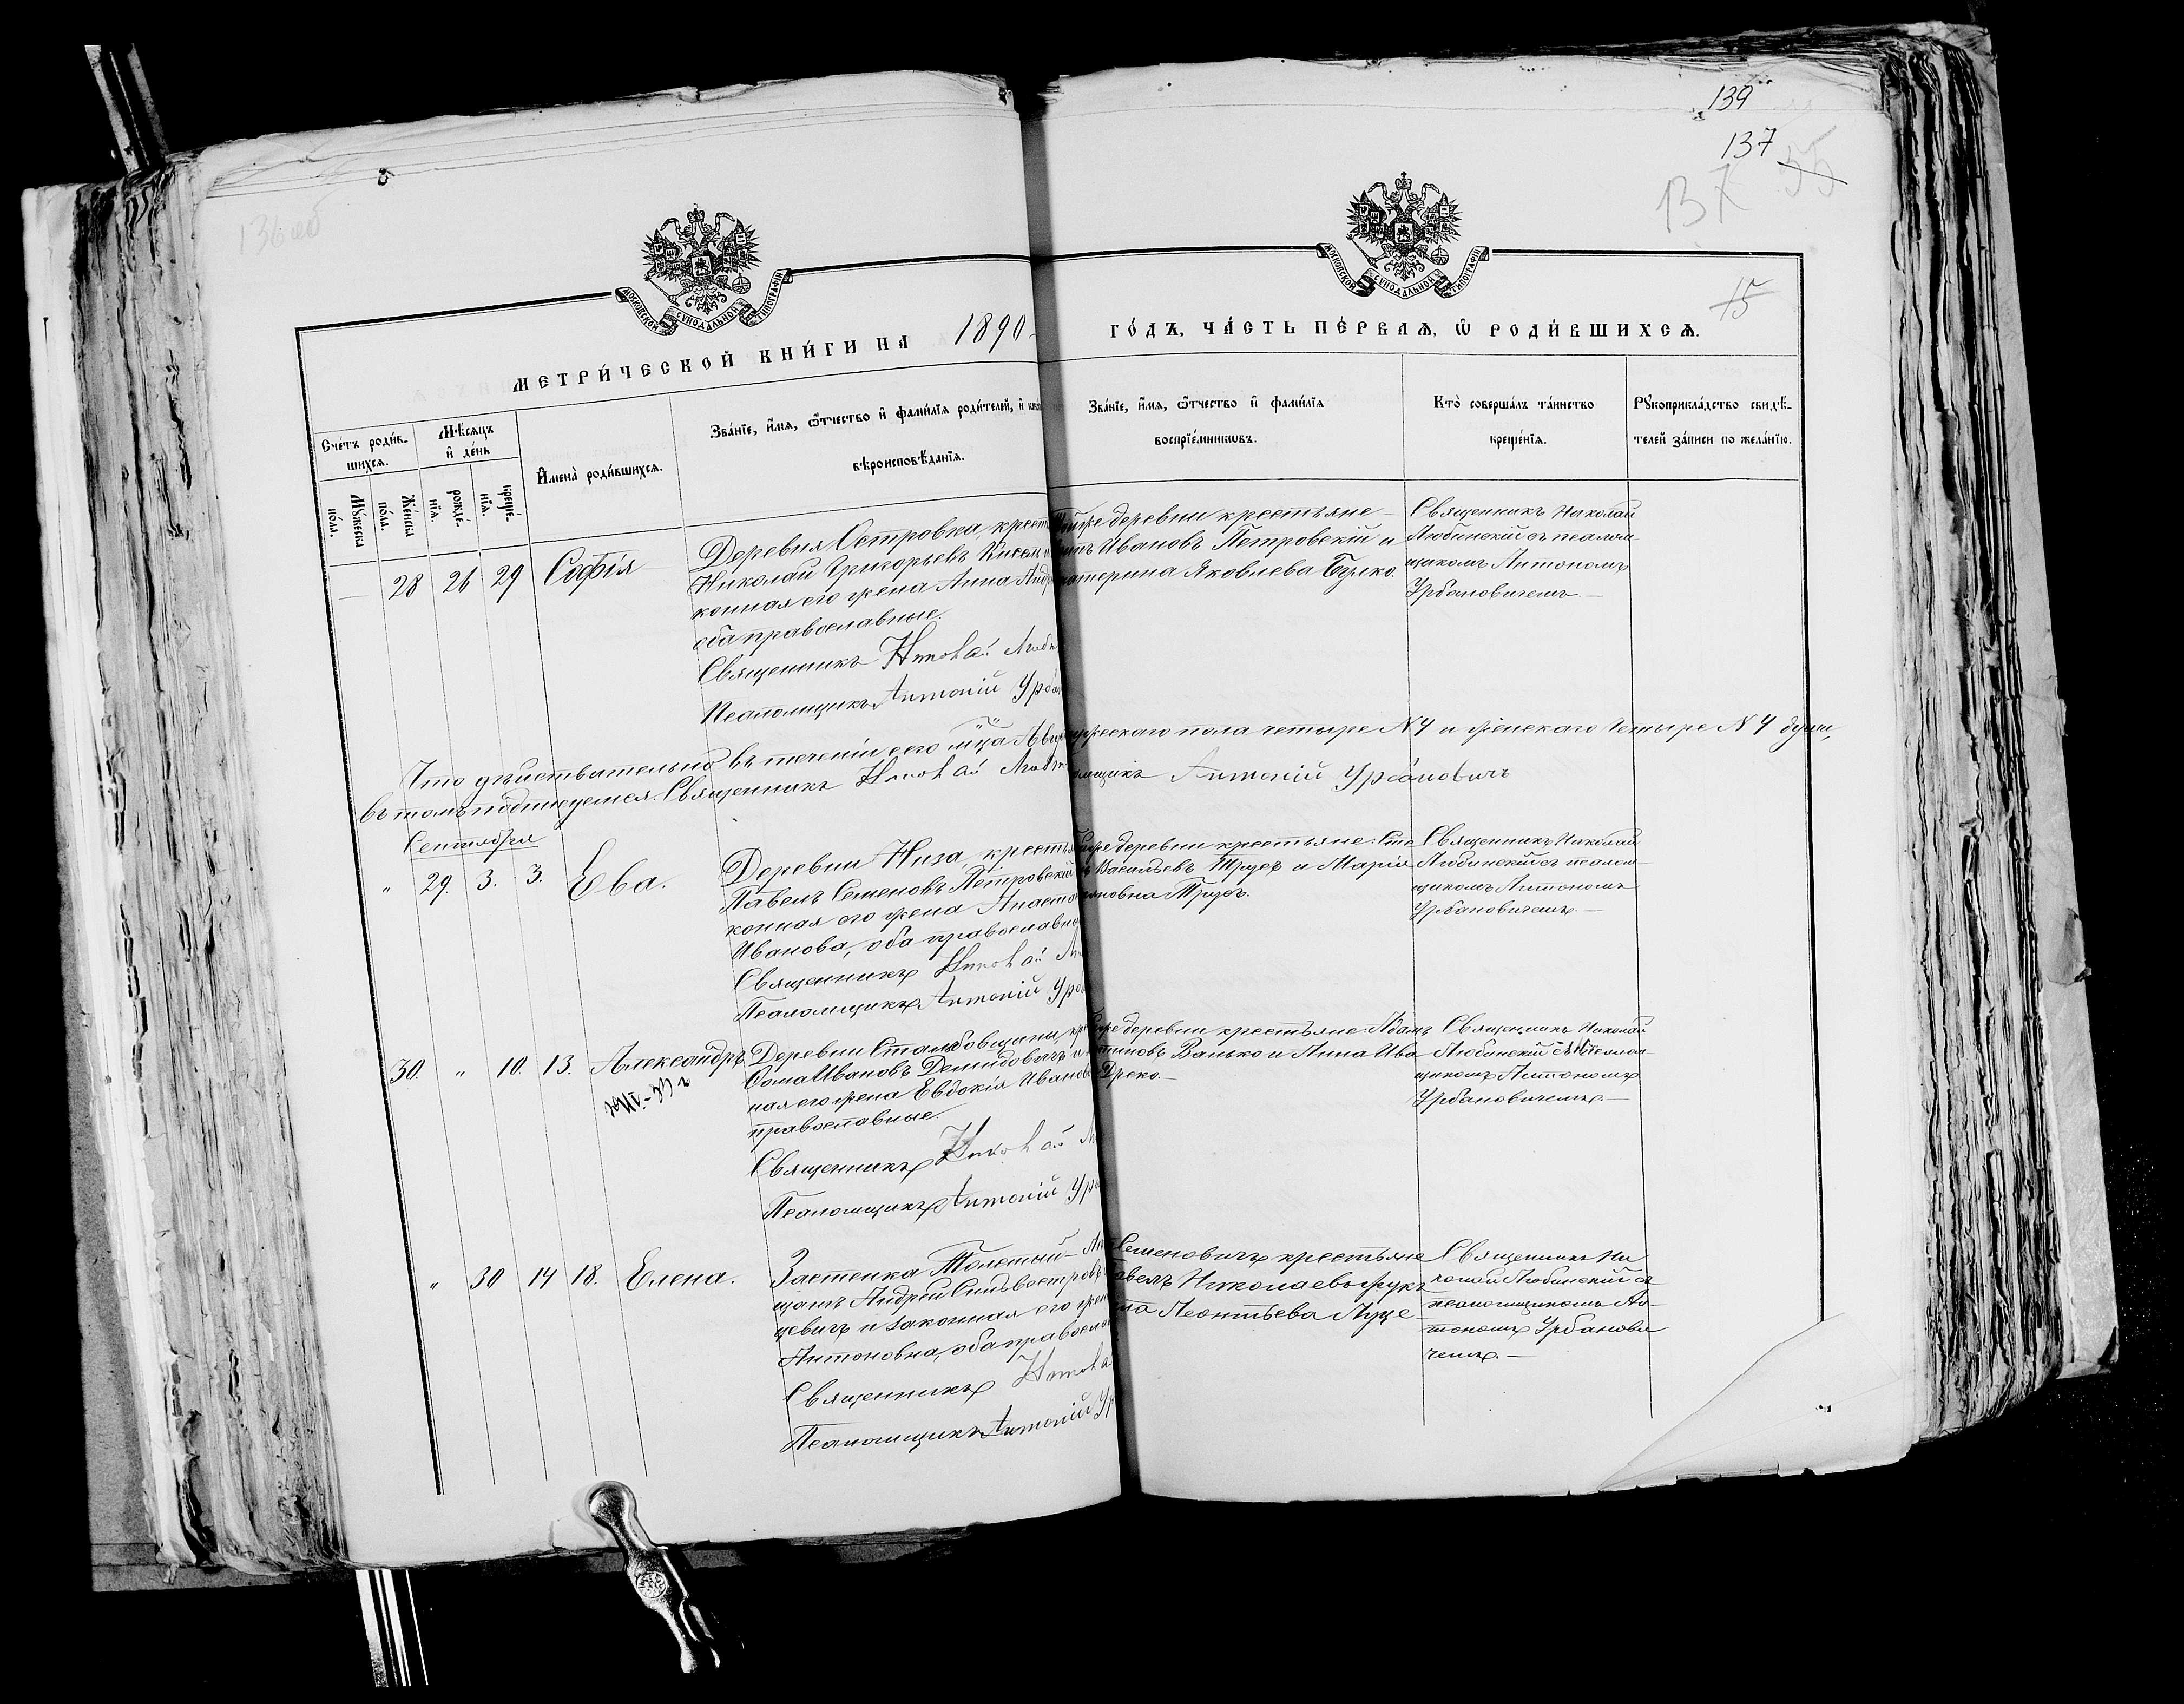 136 об
139
137
137 55
15
МОСКОВСКОЙ СУНОДАЛЬНОЙ ТИПОГРАФІИ
МОСКОВСКОЙ СУНОДАЛЬНОЙ ТИПОГРАФІИ
МЕТРИ́ЧЕСКОЙ КНИ́ГИ НА 1890
ГО́ДЪ, ЧА́СТЬ ПЕ́РВАЯ, Ѿ РОДИ́ВШИХСЯ.
Сче́тъ роди́в-
шихся.
Мѣсяцъ
и҆ де́нь
Му́жеска
по́ла.
Же́нска
по́ла.
рожде́-
нїя.
креще́-
нїя.
И҆мена̀ роди́вшихся.
Зва́нїе, и҆́мя, ѻ҆́тчество и҆ фами́лїя роди́телей, и҆
вѣроисповѣ́данїя.
Зва́нїе, и҆́мя, ѻ҆́тчество и҆ фами́лїя
воспрїе́мниковъ.
Кто̀ соверша́лъ та́инство
креще́нїя.
Рꙋкоприкла́дство свидѣ́-
телей за́писи по жела́нїю.
— 28 26 29 Софія
Деревня Островка, крест
Николай Григорьевъ
конная его жена Анна Андр
оба православные.
Священникъ Николай Люби
Псаломщикъ Антоній Урба
деревни крестьяне
Ивановъ Петровскій и
катерина Яковлева Булко.
Священникъ Николай
Любинскій съ псалом-
щикомъ Антономъ
Урбановичемъ. —
Что дѣйствительно въ теченіи сего м͠ца Авгу ужескаго пола четыре №4 и женскаго четыре №4 души,
въ томъ подписуемся. Священникъ Николай Любин омщикъ Антоній Урбановичъ
Сентября
" 29. 3. 3. Ева.
Деревни Низа, крестья
Павелъ Семеновъ Петровскій
конная его жена Анаста
Иванова, оба православны
Священникъ Николай Л
Псаломщикъ Антоній Урба
деревни крестьяне: Сте
Васильевъ Трусъ и Марія
Трусъ.
Священникъ Николай
Любинскій съ псалом-
щикомъ Антономъ
Урбановичемъ. —
30. " 10. 13. Александръ
Деревни Стальбовщины, кре
Ѳома Ивановъ Демидовичъ и
ная его жена Евдокія Иванов
православные.
Священникъ Николай Л
Псаломщикъ Антоній Урба
деревни крестьяне: Адамъ
Ванько и Анна Ива
Дреко. —
Священникъ Николай
Любинскій съ псалом-
щикомъ Антономъ
Урбановичемъ. —
" 30 14 18. Елена.
Застенка Толстый
щанъ Андрей Сильвестровъ
цевичъ и законная его жен
Антоновна, оба правосла
Священникъ Никола
Псаломщикъ Антоній Ур
Семеновичъ крестьяне
авелъ Николаевъ Жукъ
Леонтьева Луце
Священникъ Ни
колай Любинскій съ
псаломщикомъ Ан-
тономъ Урбанови
чемъ. —